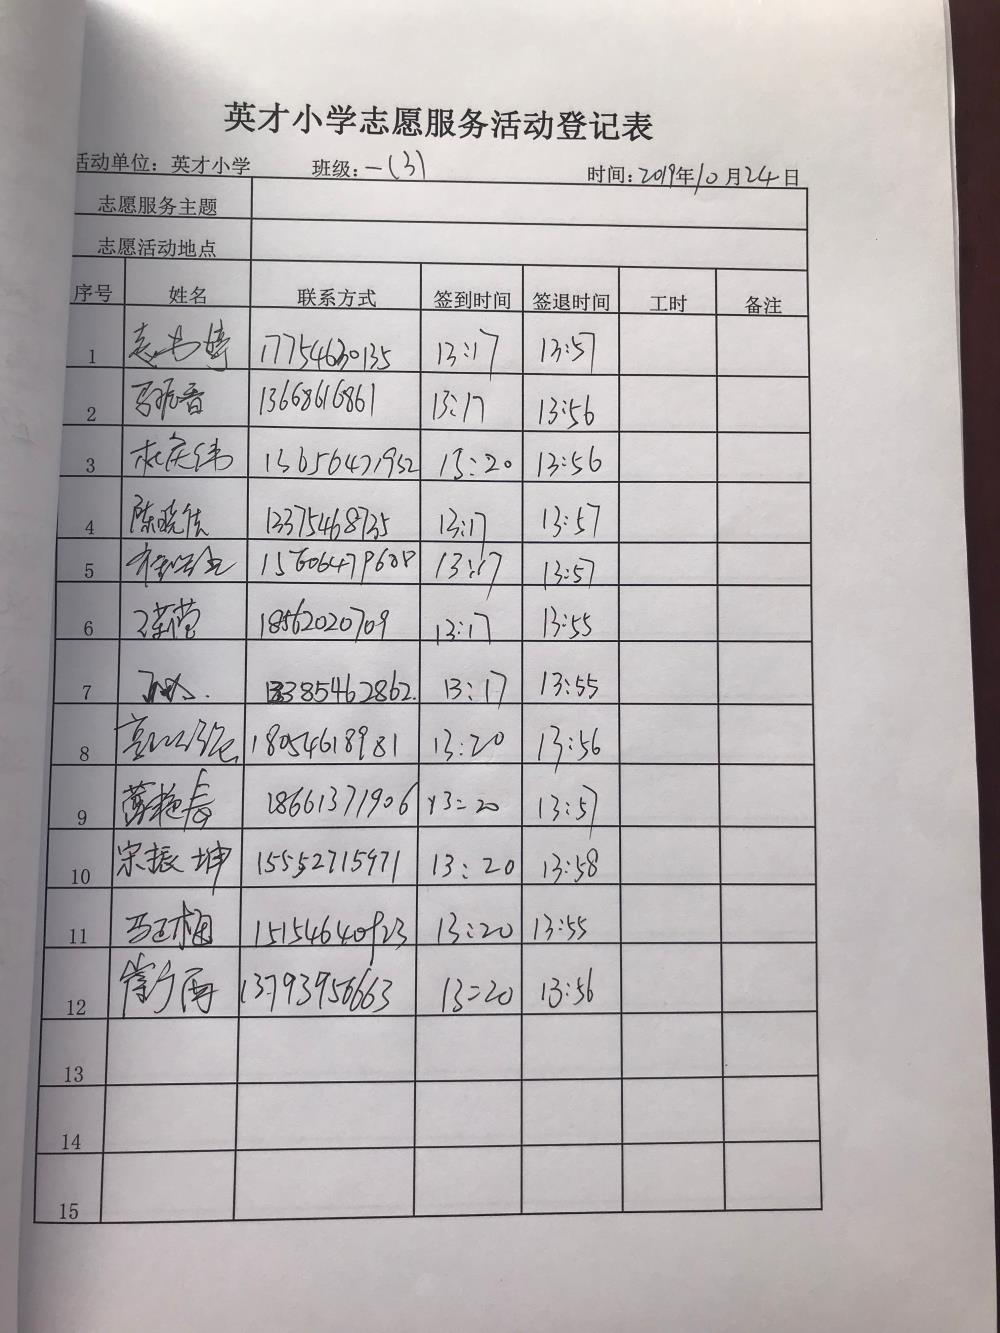 英才小学志愿服务活动登记表
活动单位：英才小学 班级：一（3） 时间：2019年10月24日
志愿服务主题
志愿活动地点
序号 姓名 联系方式 签到时间 签退时间 工时 备注
1 17754630135 13:17 13:57
2 13668616861 13:17 13:56
3 杜庆伟 13656471952 13:20 13:56
4 陈晓佳 13375468735 13:17 13:57
5 15606479608 13:17 13:57
6 18562020709 13:17 13:55
7 13385462862. 13:17 13:55
8 18054618981 13:20 13:56
9 18661371906 13:20 13:57
10 宋振坤 15552715971 13:20 13:58
11 15154640923 13:20 13:55
12 13793956663 13:20 13:56
13
14
15